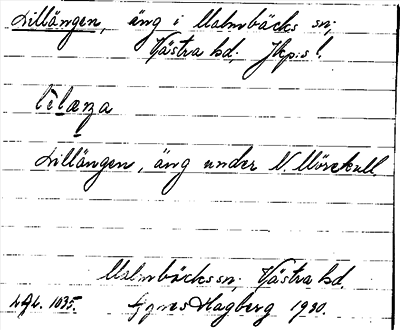 Lillängen, äng i Malmbäcks sn;
Västra hd, Jkp:s l.
Lillängen, äng under N. Mörekull.
Malmbäcks sn. Västra hd.
1035. Agnes Hagberg 1930.